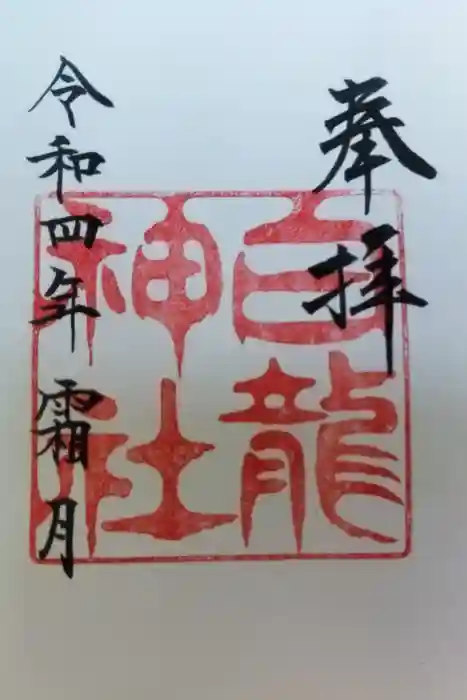 奉拝
白龍
神社
令和四年 霜月